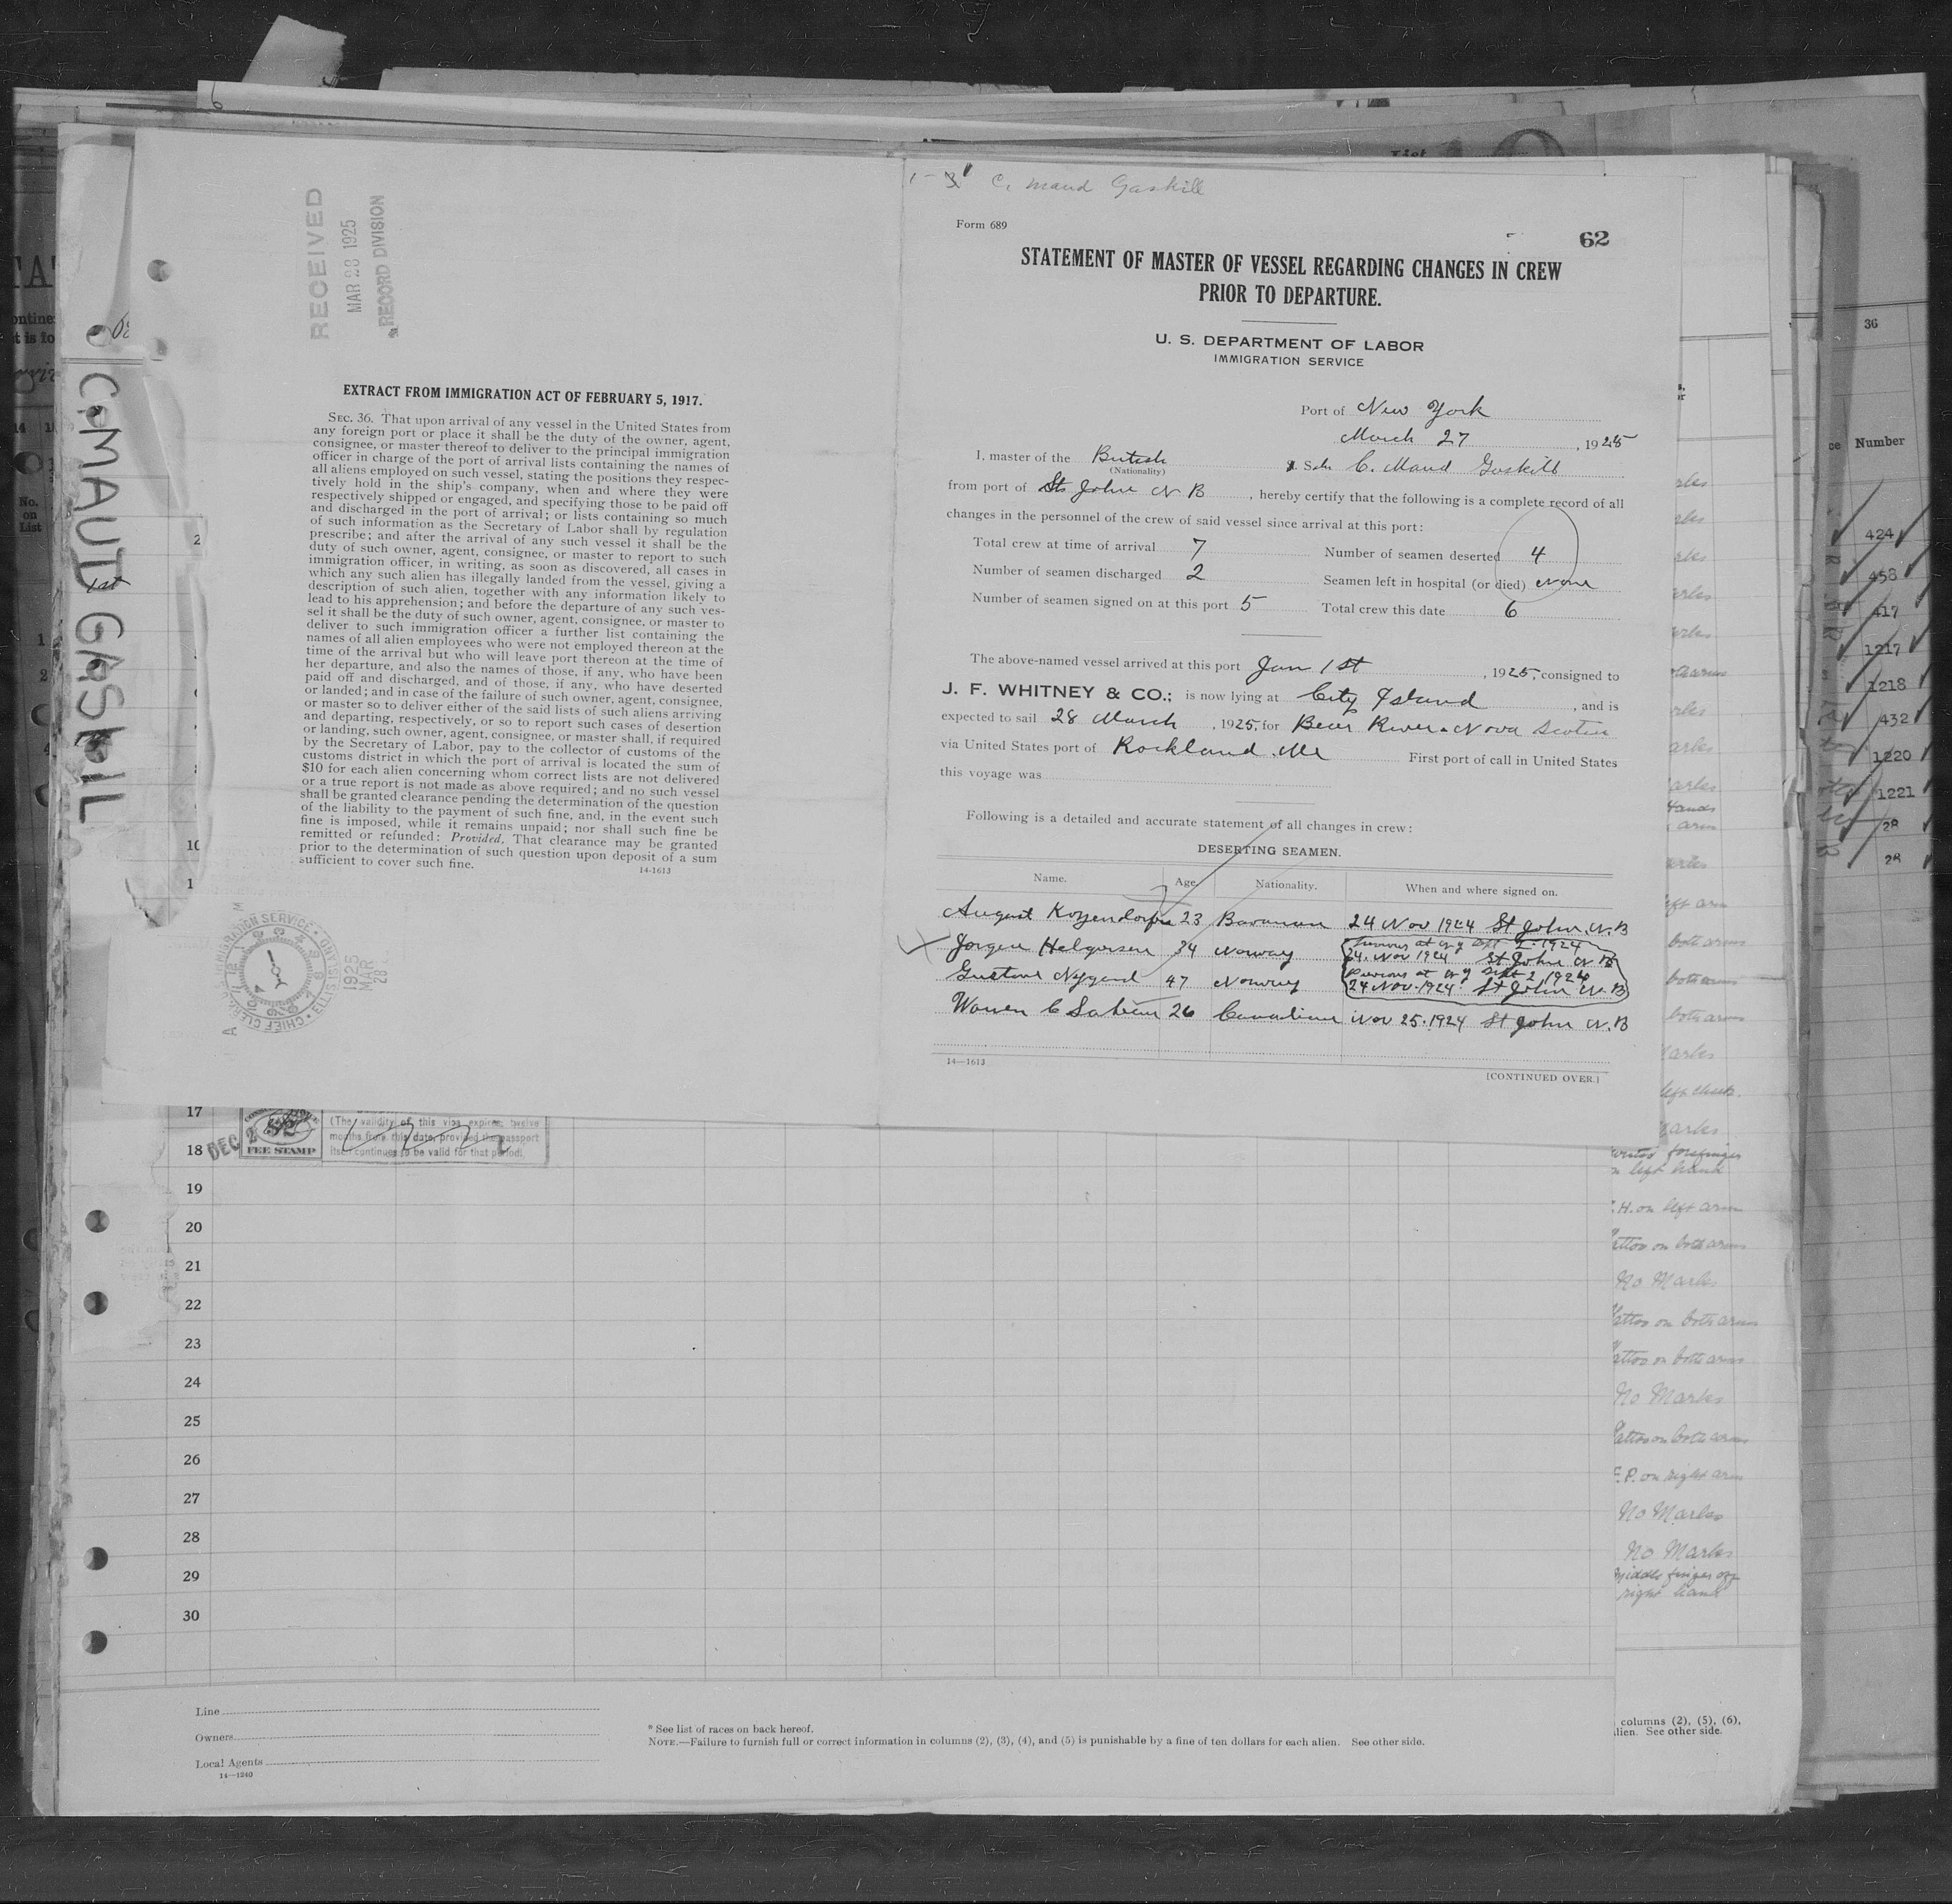 RECEIVED
MAR 28 1925
RECORD DIVISION
C. MAUD GASKILL
1st
EXTRACT FROM IMMIGRATION ACT OF FEBRUARY 5, 1917.
SEC. 36. That upon arrival of any vessel in the United States from
any foreign port or place it shall be the duty of the owner, agent,
consignee, or master thereof to deliver to the principal immigration
officer in charge of the port of arrival lists containing the names of
all aliens employed on such vessel, stating the positions they respec-
tively hold in the ship's company, when and where they were
respectively shipped or engaged, and specifying those to be paid off
and discharged in the port of arrival; or lists containing so much
of such information as the Secretary of Labor shall by regulation
prescribe; and after the arrival of any such vessel it shall be the
duty of such owner, agent, consignee, or master to report to such
immigration officer, in writing, as soon as discovered, all cases in
which any such alien has illegally landed from the vessel, giving a
description of such alien, together with any information likely to
lead to his apprehension; and before the departure of any such ves-
sel it shall be the duty of such owner, agent, consignee, or master to
deliver to such immigration officer a further list containing the
names of all alien employees who were not employed thereon at the
time of the arrival but who will leave port thereon at the time of
her departure, and also the names of those, if any, who have been
paid off and discharged, and of those, if any, who have deserted
or landed; and in case of the failure of such owner, agent, consignee,
or master so to deliver either of the said lists of such aliens arriving
and departing, respectively, or so to report such cases of desertion
or landing, such owner, agent, consignee, or master shall, if required
by the Secretary of Labor, pay to the collector of customs of the
customs district in which the port of arrival is located the sum of
$10 for each alien concerning whom correct lists are not delivered
or a true report is not made as above required; and no such vessel
shall be granted clearance pending the determination of the question
of the liability to the payment of such fine, and, in the event such
fine is imposed, while it remains unpaid; nor shall such fine be
remitted or refunded: Provided, That clearance may be granted
prior to the determination of such question upon deposit of a sum
sufficient to cover such fine.
14-1613
IMMIGRATION SERVICE
CHIEF CLERK
ELLIS ISLAND
1925
MAR
28
C. Maud Gaskill
Form 689
62
STATEMENT OF MASTER OF VESSEL REGARDING CHANGES IN CREW
PRIOR TO DEPARTURE.
U. S. DEPARTMENT OF LABOR
IMMIGRATION SERVICE
Port of New York
March 27, 1925
I, master of the British Schr C. Maud Gaskill
(Nationality)
from port of St John N B, hereby certify that the following is a complete record of all
changes in the personnel of the crew of said vessel since arrival at this port:
Total crew at time of arrival 7 Number of seamen deserted 4
Number of seamen discharged 2 Seamen left in hospital (or died) None
Number of seamen signed on at this port 5 Total crew this date 6
The above-named vessel arrived at this port Jan 1st, 1925, consigned to
J. F. WHITNEY & CO.; is now lying at City Island, and is
expected to sail 28 March, 1925, for Bear River Nova Scotia
via United States port of Rockland Me First port of call in United States
this voyage was
Following is a detailed and accurate statement of all changes in crew:
DESERTING SEAMEN.
Name. Age Nationality. When and where signed on.
August 23 24 Nov 1924 St John N.B
Jorgen Helgersen 34 Norway 24 Nov 1924 St John N B
Gustave Nygard 47 Norway 24 Nov. 1924 St John N.B
Warren C 26 Canadian Nov 25. 1924 St John N.B
14—1613
[CONTINUED OVER.]
17
18
DEC 2
FEE STAMP
(The validity of this visa expires twelve
months from this date, provided the passport
itself continues to be valid for that period).
19
20
21
22
23
24
25
26
27
28
29
30
Line
Owners
Local Agents
14—1240
* See list of races on back hereof.
NOTE.—Failure to furnish full or correct information in columns (2), (3), (4), and (5) is punishable by a fine of ten dollars for each alien. See other side.
left hand
.H. on left arm
on both arms
No Marks
on both arms
on both arms
No Marks
on both arms
F.P. on right arm
No Marks
No Marks
Middle finger off
right hand
columns (2), (5), (6),
alien. See other side.
36
Number
424
458
417
1217
1218
432
1220
1221
2R
2R